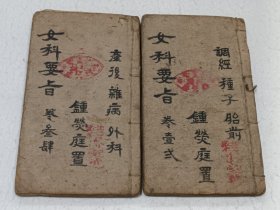 調經種子胎前
鍾熒庭置
女科要旨
卷壹弍
產後雜病外科
鍾熒庭置
女科要旨
卷叁肆